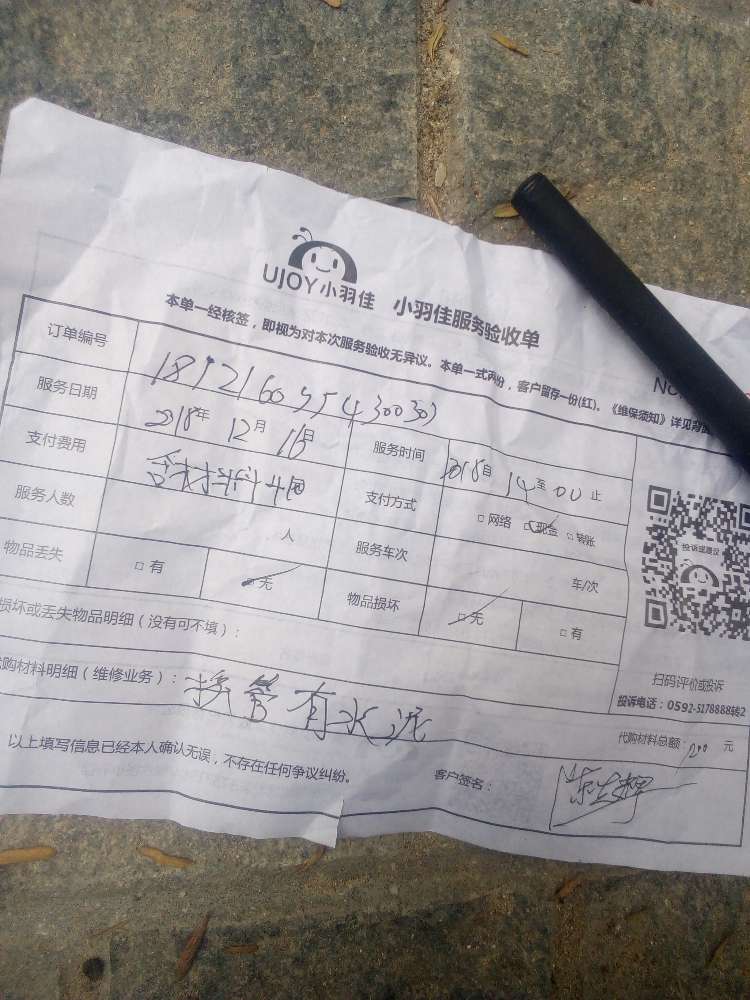 UJOY小羽佳 小羽佳服务验收单
本单一经核签，即视为对本次服务验收无异议。本单一式两份，客户留存一份(红)。《维保须知》详见背面
No.
订单编号
服务日期 2018年 12月 16日 服务时间 14至 00 止
支付费用 含材料 支付方式 □网络 □现金 □转账
服务人数 人 服务车次 车/次
物品丢失 □有 □无 物品损坏 □无 □有
损坏或丢失物品明细（没有可不填）：
购材料明细（维修业务）： 接管有水泥
投诉或建议
扫码评价或投诉
投诉电话：0592-5178888转2
代购材料总额： 200 元
以上填写信息已经本人确认无误，不存在任何争议纠纷。 客户签名：